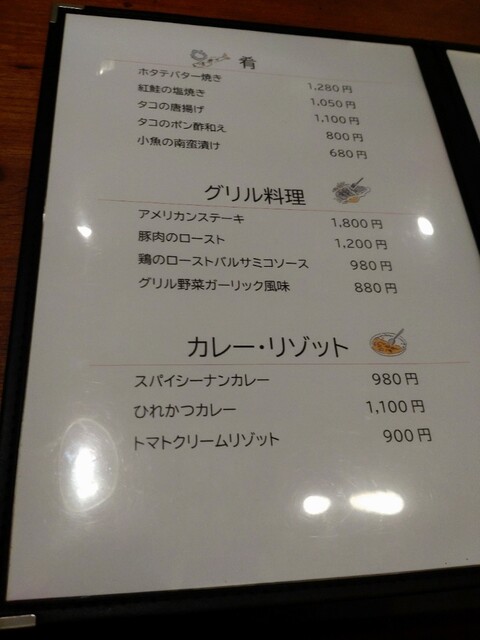 肴
ホタテバター焼き 1,280円
紅鮭の塩焼き 1,050円
タコの唐揚げ 1,100円
タコのポン酢和え 800円
小魚の南蛮漬け 680円
グリル料理
アメリカンステーキ 1,800円
豚肉のロースト 1,200円
鶏のローストバルサミコソース 980円
グリル野菜ガーリック風味 880円
カレー・リゾット
スパイシーナンカレー 980円
ひれかつカレー 1,100円
トマトクリームリゾット 900円